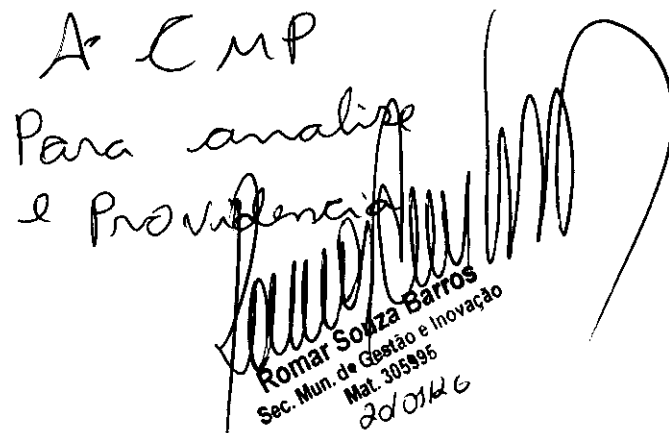 A CMP
Para analise
e Providencia
Romar Souza Barros
Sec. Mun. de Gestão e Inovação
Mat. 305995